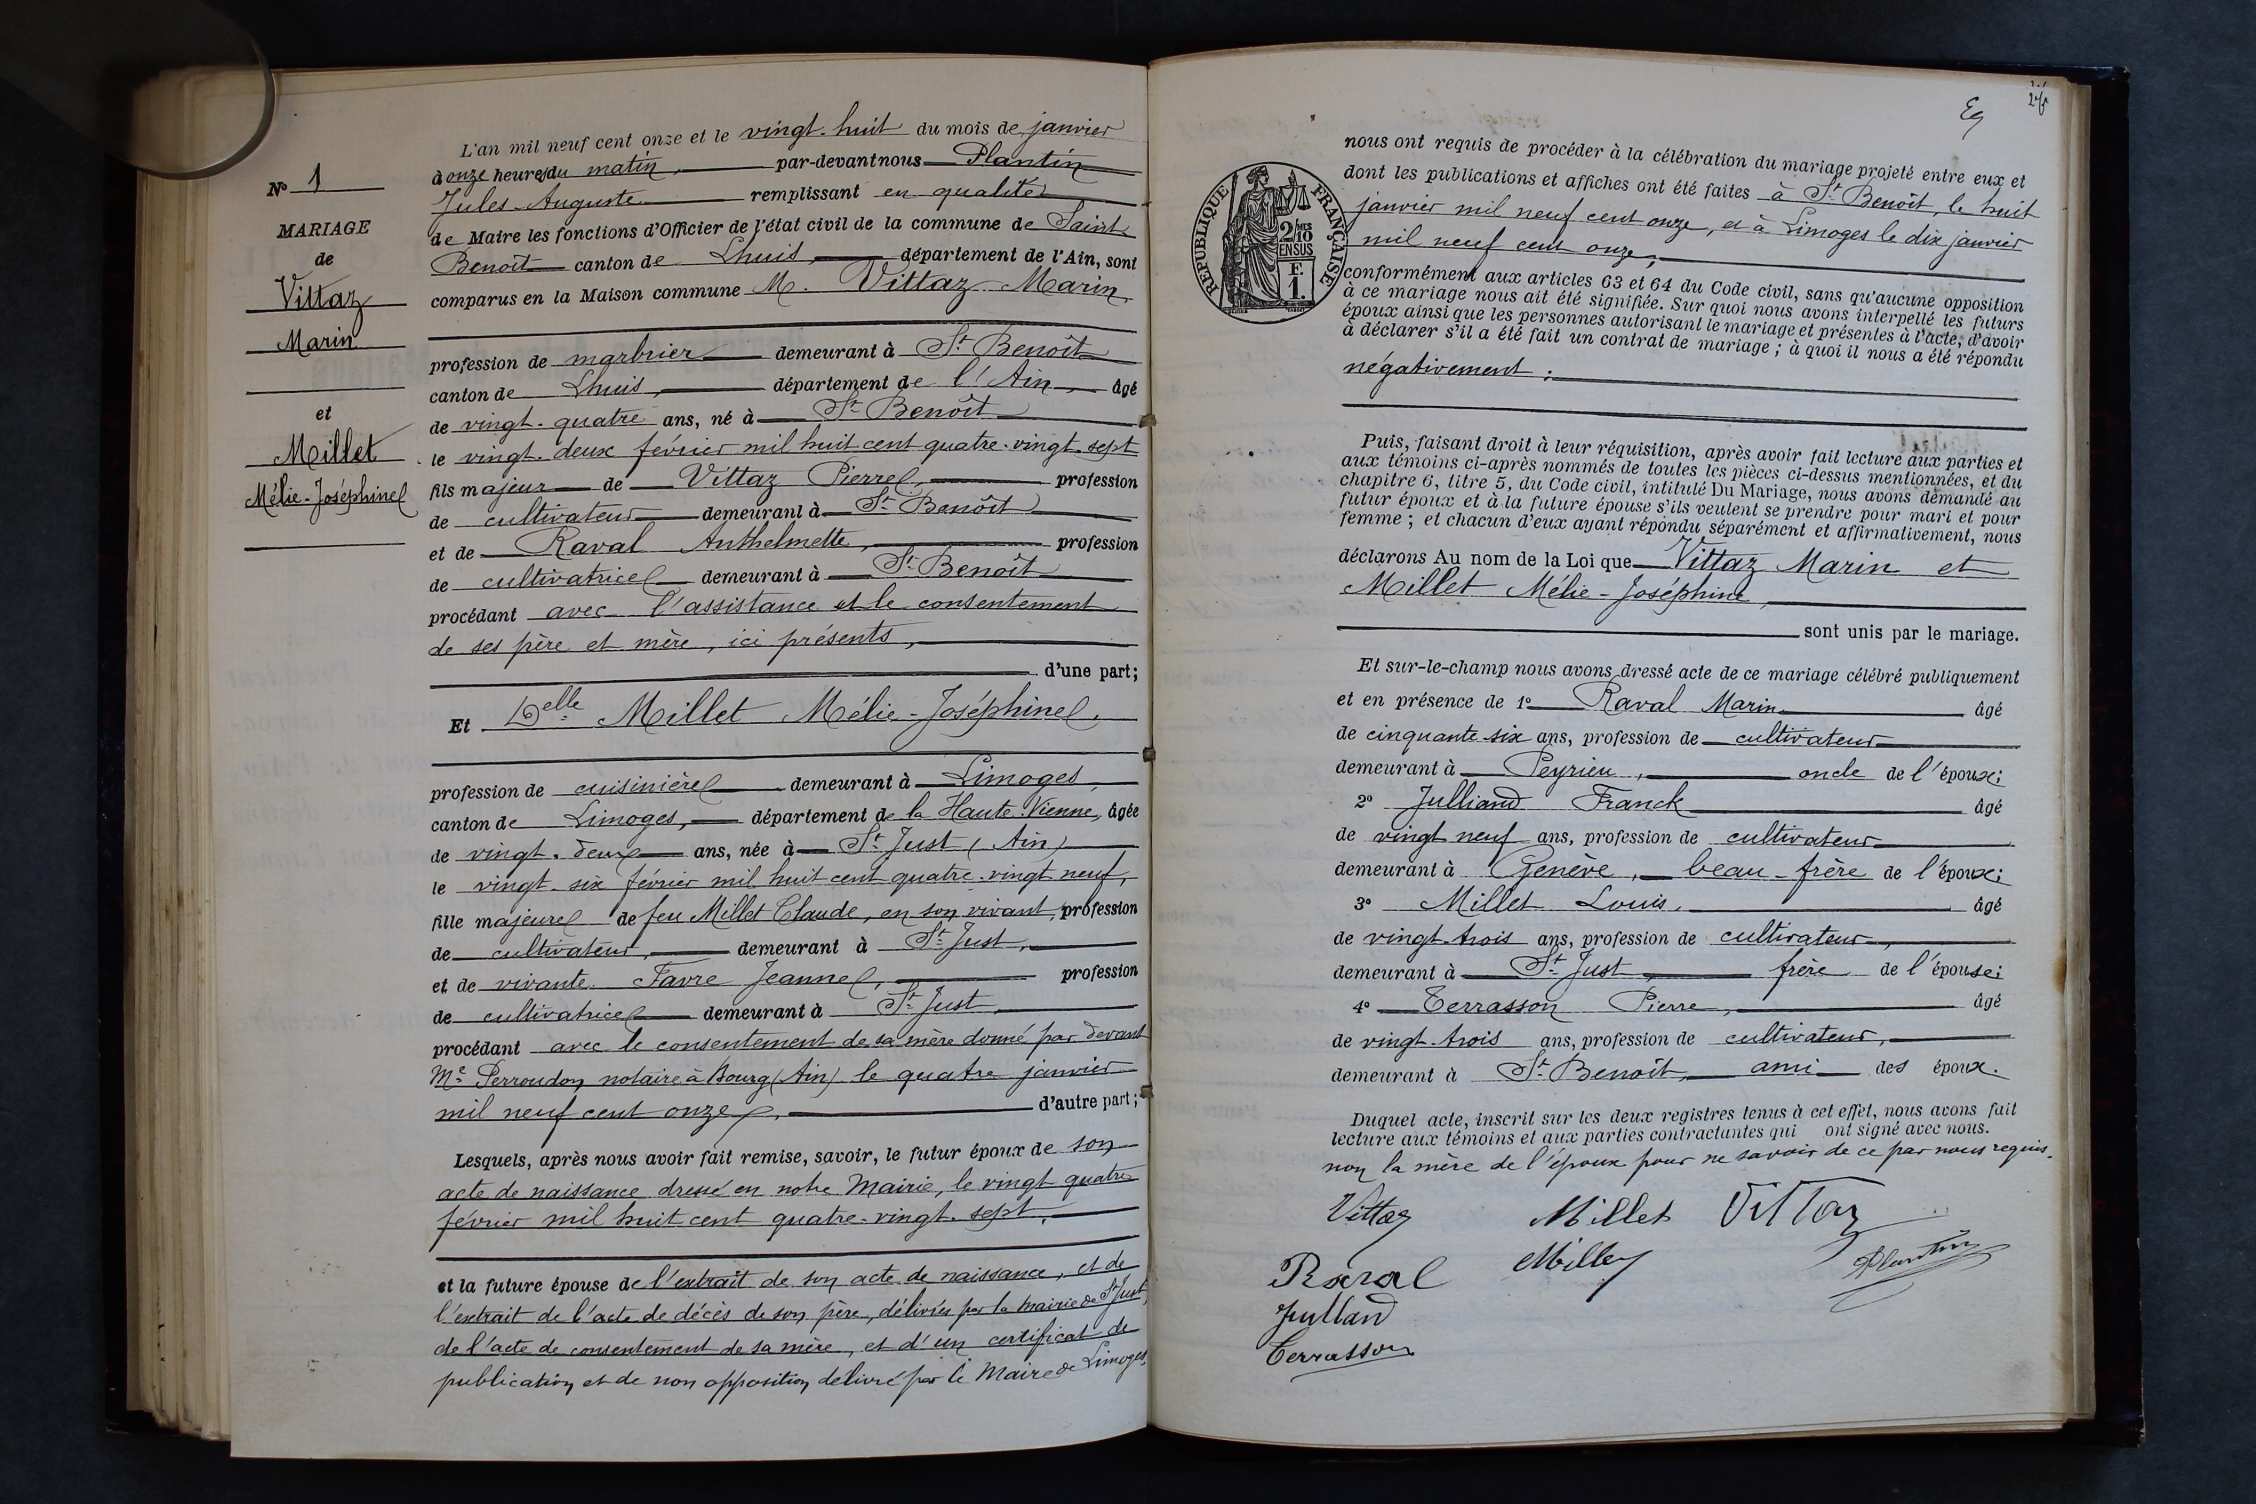 N° 1
MARIAGE
de
Vittaz
Marin
et
Millet
Mélie-Joséphine
L'an mil neuf cent onze et le vingt-huit du mois de janvier
à onze heures du matin, par-devant nous Plantin
Jules-Auguste remplissant en qualité
de Maire les fonctions d'Officier de l'état civil de la commune de Saint-
Benoît canton de Lhuis, département de l'Ain, sont
comparus en la Maison commune M. Vittaz Marin
profession de marbrier demeurant à St Benoît
canton de Lhuis, département de l'Ain, âgé
de vingt-quatre ans, né à St Benoît
le vingt-deux février mil huit cent quatre-vingt-sept
fils majeur de Vittaz Pierre, profession
de cultivateur demeurant à St Benoît
et de Raval Anthelmette, profession
de cultivatrice demeurant à St Benoît
procédant avec l'assistance et le consentement
de ses père et mère, ici présents,
d'une part;
Et Delle Millet Mélie-Joséphine.
profession de cuisinière demeurant à Limoges
canton de Limoges, département de la Haute-Vienne, âgée
de vingt-deux ans, née à St Just (Ain)
le vingt-six février mil huit cent quatre-vingt neuf,
fille majeure de feu Millet Claude, en son vivant, profession
de cultivateur, demeurant à St Just,
et de vivante Favre Jeanne, profession
de cultivatrice demeurant à St Just
procédant avec le consentement de sa mère donné par devant
Me Perroudon notaire à Bourg (Ain) le quatre janvier
mil neuf cent onze, d'autre part;
Lesquels, après nous avoir fait remise, savoir, le futur époux de son
acte de naissance dressé en notre Mairie, le vingt quatre
février mil huit cent quatre-vingt-sept,
et la future épouse de l'extrait de son acte de naissance, et de
l'extrait de l'acte de décès de son père, délivrés par la mairie de St Just,
de l'acte de consentement de sa mère, et d'un certificat de
publication et de non opposition délivré par le Maire de Limoges,
RÉPUBLIQUE FRANÇAISE
2/10
EN SUS
F.
1.
nous ont requis de procéder à la célébration du mariage projeté entre eux et
dont les publications et affiches ont été faites à St Benoît, le huit
janvier mil neuf cent onze, et à Limoges le dix janvier
mil neuf cent onze,
conformément aux articles 63 et 64 du Code civil, sans qu'aucune opposition
à ce mariage nous ait été signifiée. Sur quoi nous avons interpellé les futurs
époux ainsi que les personnes autorisant le mariage et présentes à l'acte, d'avoir
à déclarer s'il a été fait un contrat de mariage ; à quoi il nous a été répondu
négativement ;
Puis, faisant droit à leur réquisition, après avoir fait lecture aux parties et
aux témoins ci-après nommés de toutes les pièces ci-dessus mentionnées, et du
chapitre 6, titre 5, du Code civil, intitulé Du Mariage, nous avons demandé au
futur époux et à la future épouse s'ils veulent se prendre pour mari et pour
femme ; et chacun d'eux ayant répondu séparément et affirmativement, nous
déclarons Au nom de la Loi que Vittaz Marin et
Millet Mélie-Joséphine,
sont unis par le mariage.
Et sur-le-champ nous avons dressé acte de ce mariage célébré publiquement
et en présence de 1° Raval Marin âgé
de cinquante-six ans, profession de cultivateur
demeurant à Peyrieu, oncle de l'époux;
2° Julliand Franck âgé
de vingt neuf ans, profession de cultivateur
demeurant à Genève, beau-frère de l'époux;
3° Millet Louis, âgé
de vingt-trois ans, profession de cultivateur,
demeurant à St Just, frère de l'épouse;
4° Terrasson Pierre, âgé
de vingt-trois ans, profession de cultivateur,
demeurant à St Benoît, ami des époux.
Duquel acte, inscrit sur les deux registres tenus à cet effet, nous avons fait
lecture aux témoins et aux parties contractantes qui ont signé avec nous.
non la mère de l'époux pour ne savoir de ce par nous requis.
Vittaz Millet Vittaz
Raval Millet Plantin
Julliand
Terrasson